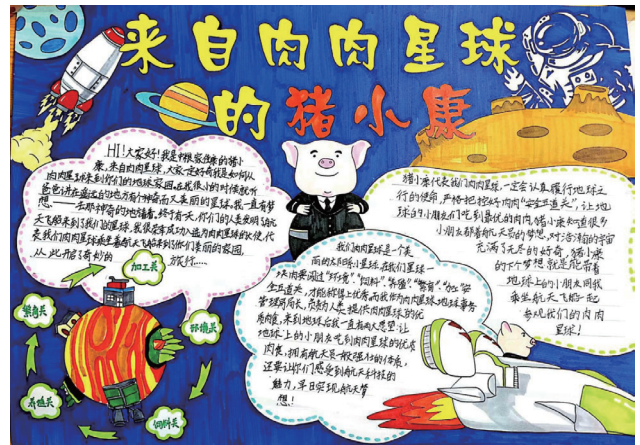 来自肉肉星球
的猪小康
HI！大家好！我是中粮家佳康的猪小
康，来自肉肉星球，大家一定好奇我是如何从
肉肉星球来到你们的地球家园，在我很小的时候就听
爸爸讲在遥远的地方有个神奇而又美丽的星球，我一直有梦
想一去那神奇的地球看看，终于有天，你们的人类发明了航
天飞船来到了我们的星球，我很荣幸成功入选为肉肉星球的大使，代
表我们肉肉星球乘坐着航天飞船来到你们美丽的家园，
从此开启了奇妙的旅行……
加工关
繁育关
环境关
养殖关
饲料关
我们肉肉星球是一个美
丽的太阳系小星球，在我们星球一
块肉要闯过“环境”、“饲料”、“养殖”、“繁育”、“加工”安
全五道关，才能称得上优秀，而我作为肉肉星球地球事务
管理局局长，负责为人类提供肉肉星球的优
质肉食，来到地球后我一直有两大愿望：让
地球上的小朋友吃到肉肉星球的优质
肉食，拥有航天员一般强壮的体魄，
还要让你们感受到航天科技的
魅力，早日实现航天梦
想！
猪小康代表我们肉肉星球，一定会认真履行地球之
行的使命，严格把控好肉肉“安全五道关”，让地
球的小朋友们吃到最优的肉肉，猪小康知道很多
小朋友都有航天员的梦想，对浩瀚的宇宙
充满了无尽的好奇，猪小康
的下个梦想就是能带着
地球上的小朋友同我
乘坐航天飞船一起
参观我们的肉肉
星球！